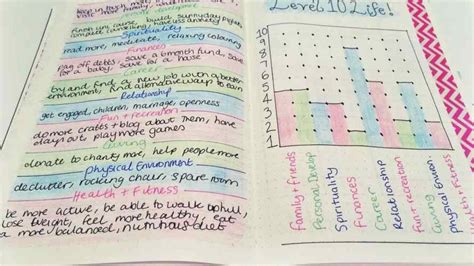 keep in touch more,
visit family
Personal Development
find cause, build
complete counselling
Spirituality
read more, meditate, relaxing colouring
Finances
pay off debts. save 6 month fund, save
for a baby. save for a house
Career
try and find a new job with a better
environment. find alternative ways to earn
Relationship
get engaged, children, marriage, openness
Fun + recreation
do more crafts + blog about them, have
days out, play more games
Giving
donate to charity more, help people more
Physical Environment
declutter, rocking chair, spare room
Health + Fitness
be more active, be able to walk uphill,
lose weight, feel more healthy, eat
a more balanced, nutritious diet
Level 10 Life!
10
9
8
7
6
5
4
3
2
1
Family + friends
Personal Develop
Spirituality
Finances
Career
Relationship
Fun + recreation
Giving
Physical Environ.
Health + fitness